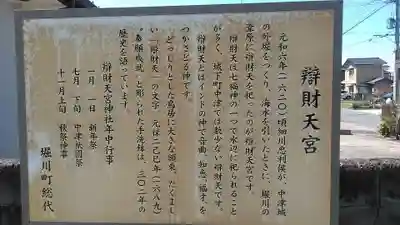 辯財天宮
元和六年(一六二〇)頃細川忠利侯が、中津城
の外堀をつくり、海水を引いたときに、堀川の
葦原に辯財天を祀ったのが辯財天宮です。
辯財天は七福神の一つで水辺に祀られること
が多く、城下町中津では数少ない辯財天です。
辯財天とはインドの神で音曲、知恵、福才、を
つかさどる神です。
どっしりとした鳥居に大きな額束、たくまし
い「辯財天」の文字、元保二己巳年(一六八九)
「奉願成就」と彫られた手洗鉢は、三〇二年の
歴史を語っています。
辯財天宮神社年中行事
一月一日 新年祭
七月下旬 中津祇園祭
十一月上旬 秋祭神事
堀川町総代